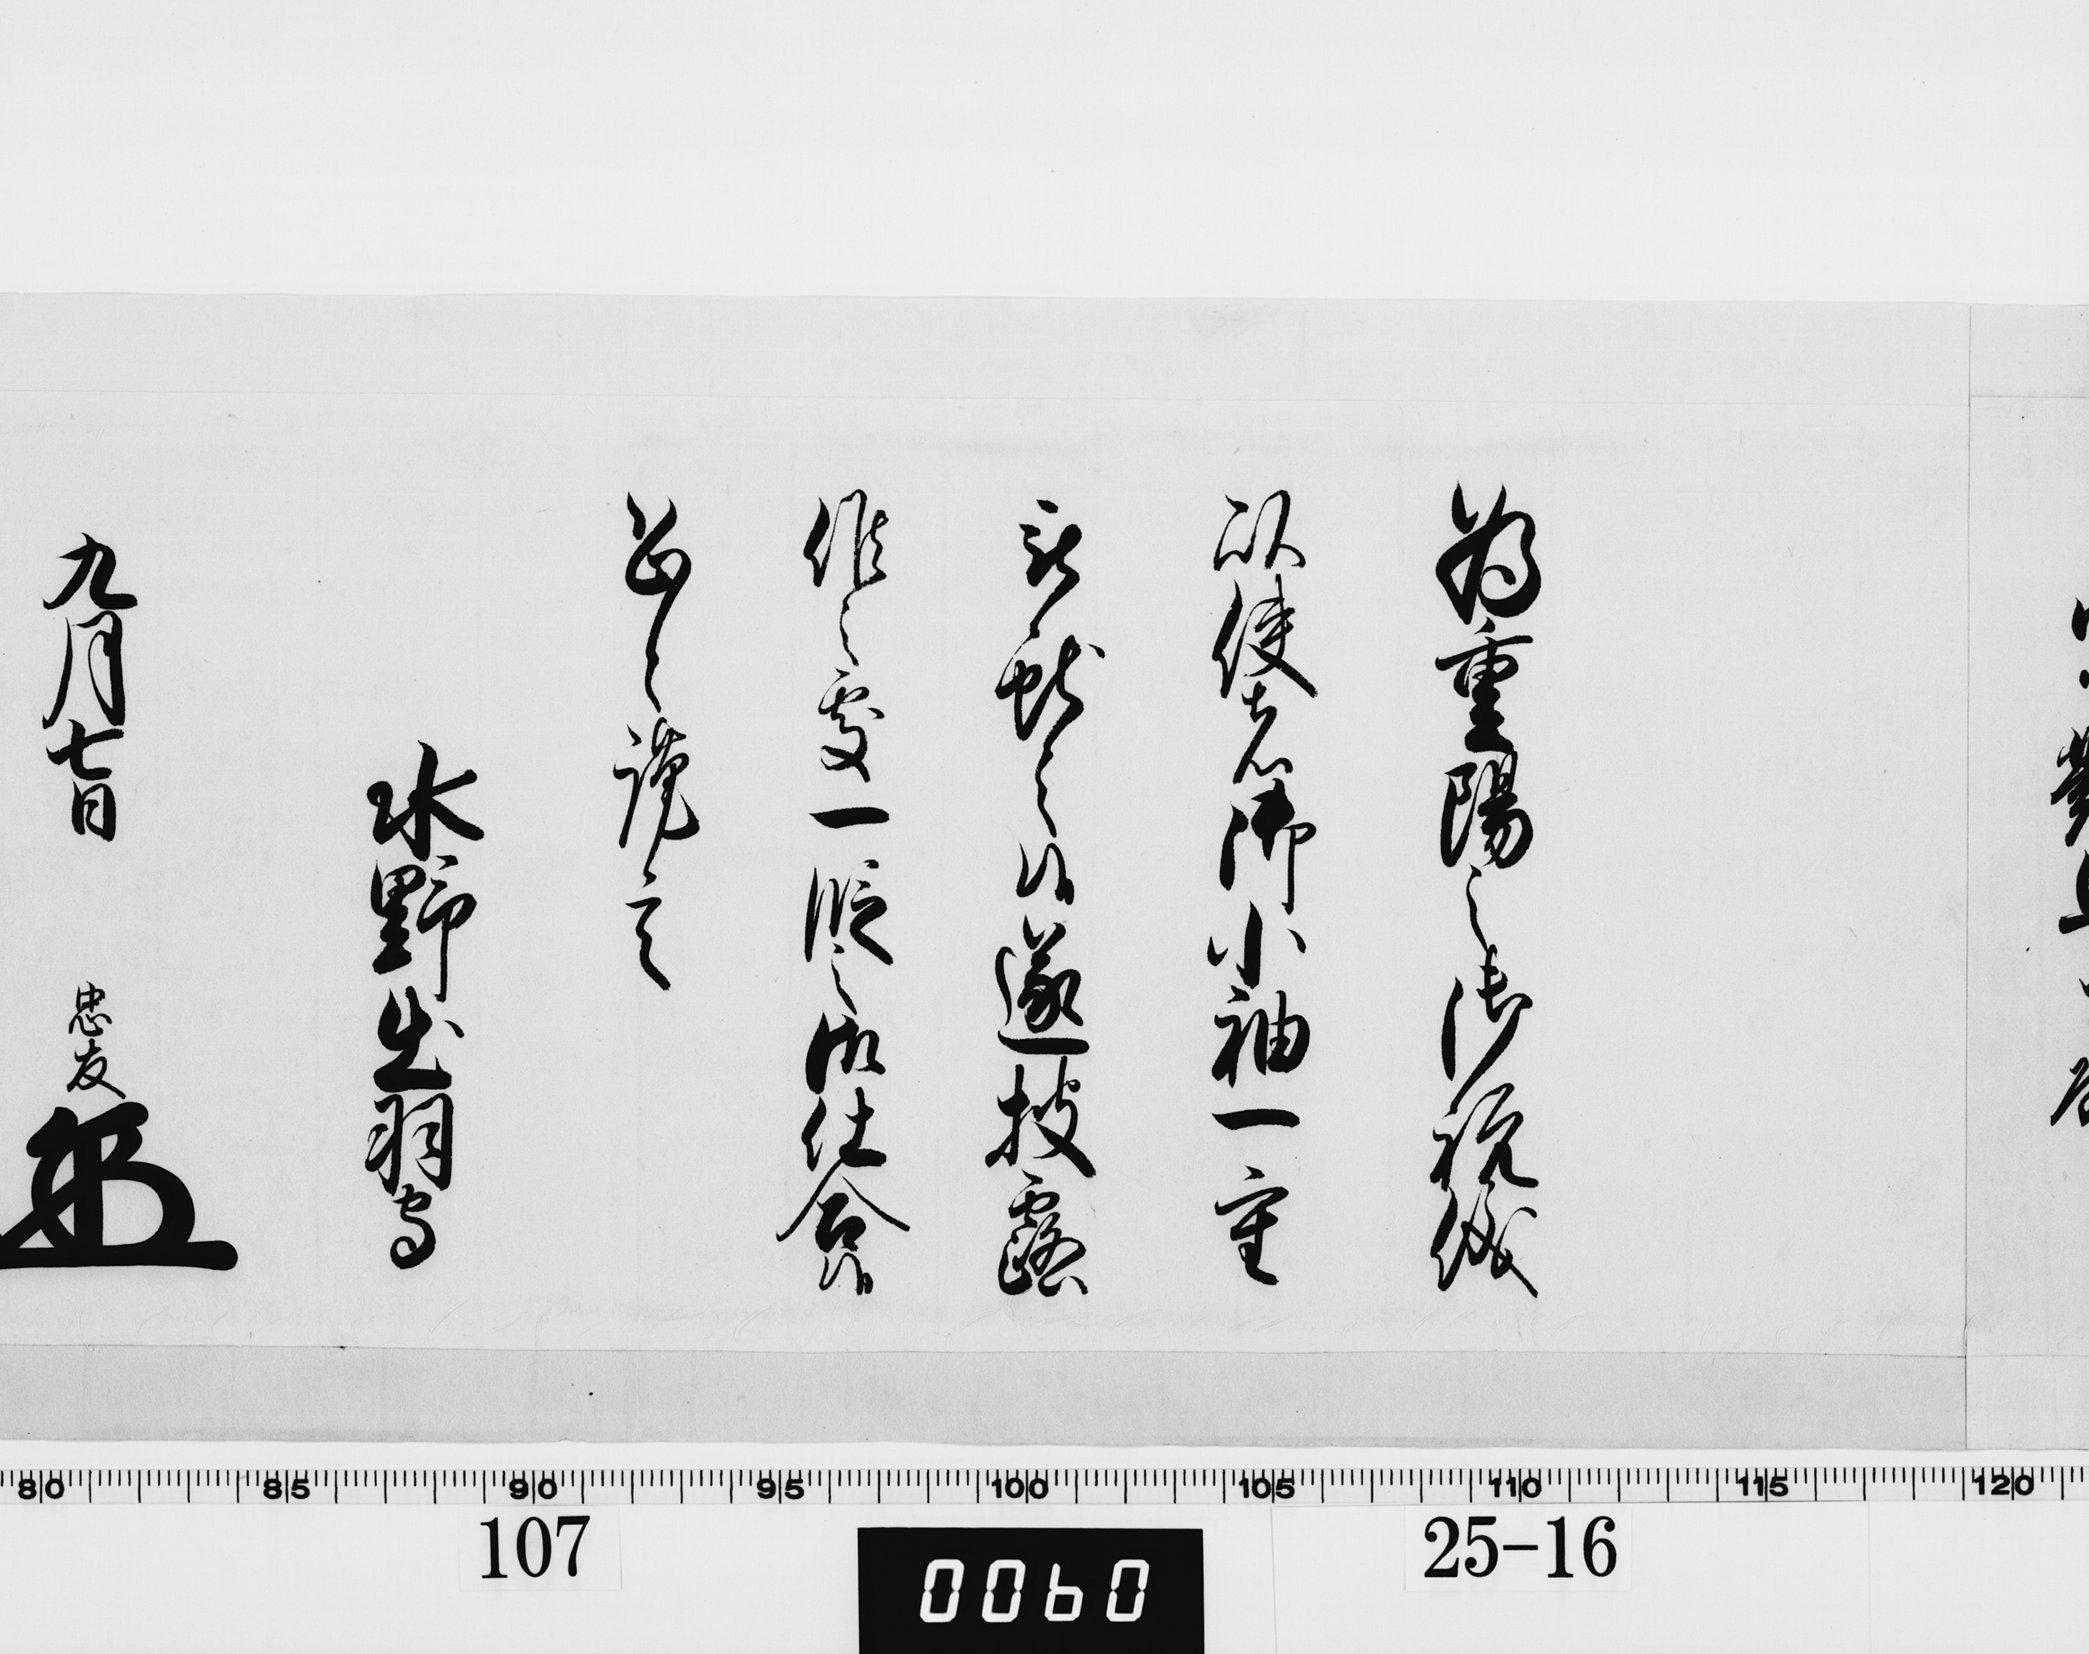 為重陽之御祝儀
以使者御小袖一重
被献之候遂披露
候之處一段之御仕合候
恐々謹言
水野出羽守
九月七日 忠友
80 85 90 95 100 105 110 115 120
107
0060
25-16